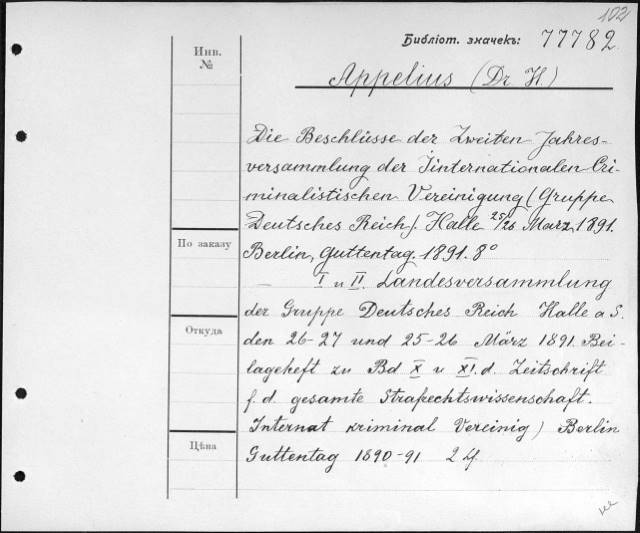 102
Библіот. значекъ: 77782
Инв.
№
Appelius (Dr H.)
Die Beschlüsse der Zweiten Jahres-
versammlung der Iinternationalen Cri-
minalistischen Vereinigung (Gruppe
Deutsches Reich). Halle 25/26 März 1891.
По заказу
Berlin, Guttentag. 1891. 8°
— I u II. Landesversammlung
der Gruppe Deutsches Reich Halle a S.
Откуда
den 26-27 und 25-26 März 1891. Bei-
lageheft zu Bd X u XI. d. Zeitschrift
f. d. gesamte Strafrechtswissenschaft.
Internat kriminal Vereinig) Berlin
Цѣна
Guttentag 1890-91 2